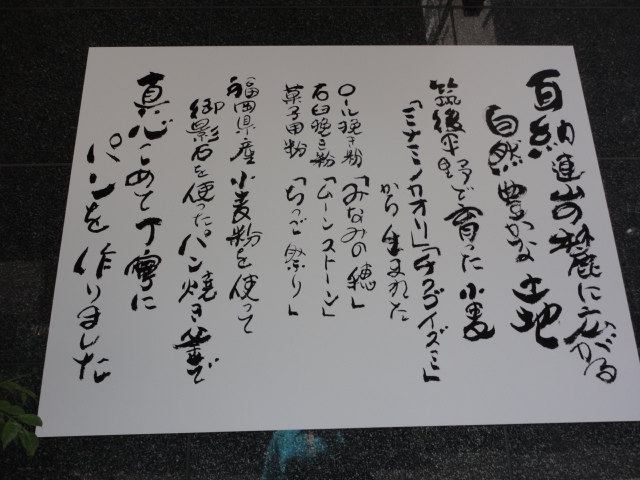 耳納連山の麓に広がる
自然豊かな土地
筑後平野で育った小麦
「ミナミノカオリ」「チクゴイズミ」
から生まれた
ロール挽き粉「みなみの穂」
石臼挽き粉「ムーンストーン」
菓子用粉「ちっご祭り」
福岡県産小麦粉を使って
御影石を使ったパン焼き釜で
真心こめて丁寧に
パンを作りました